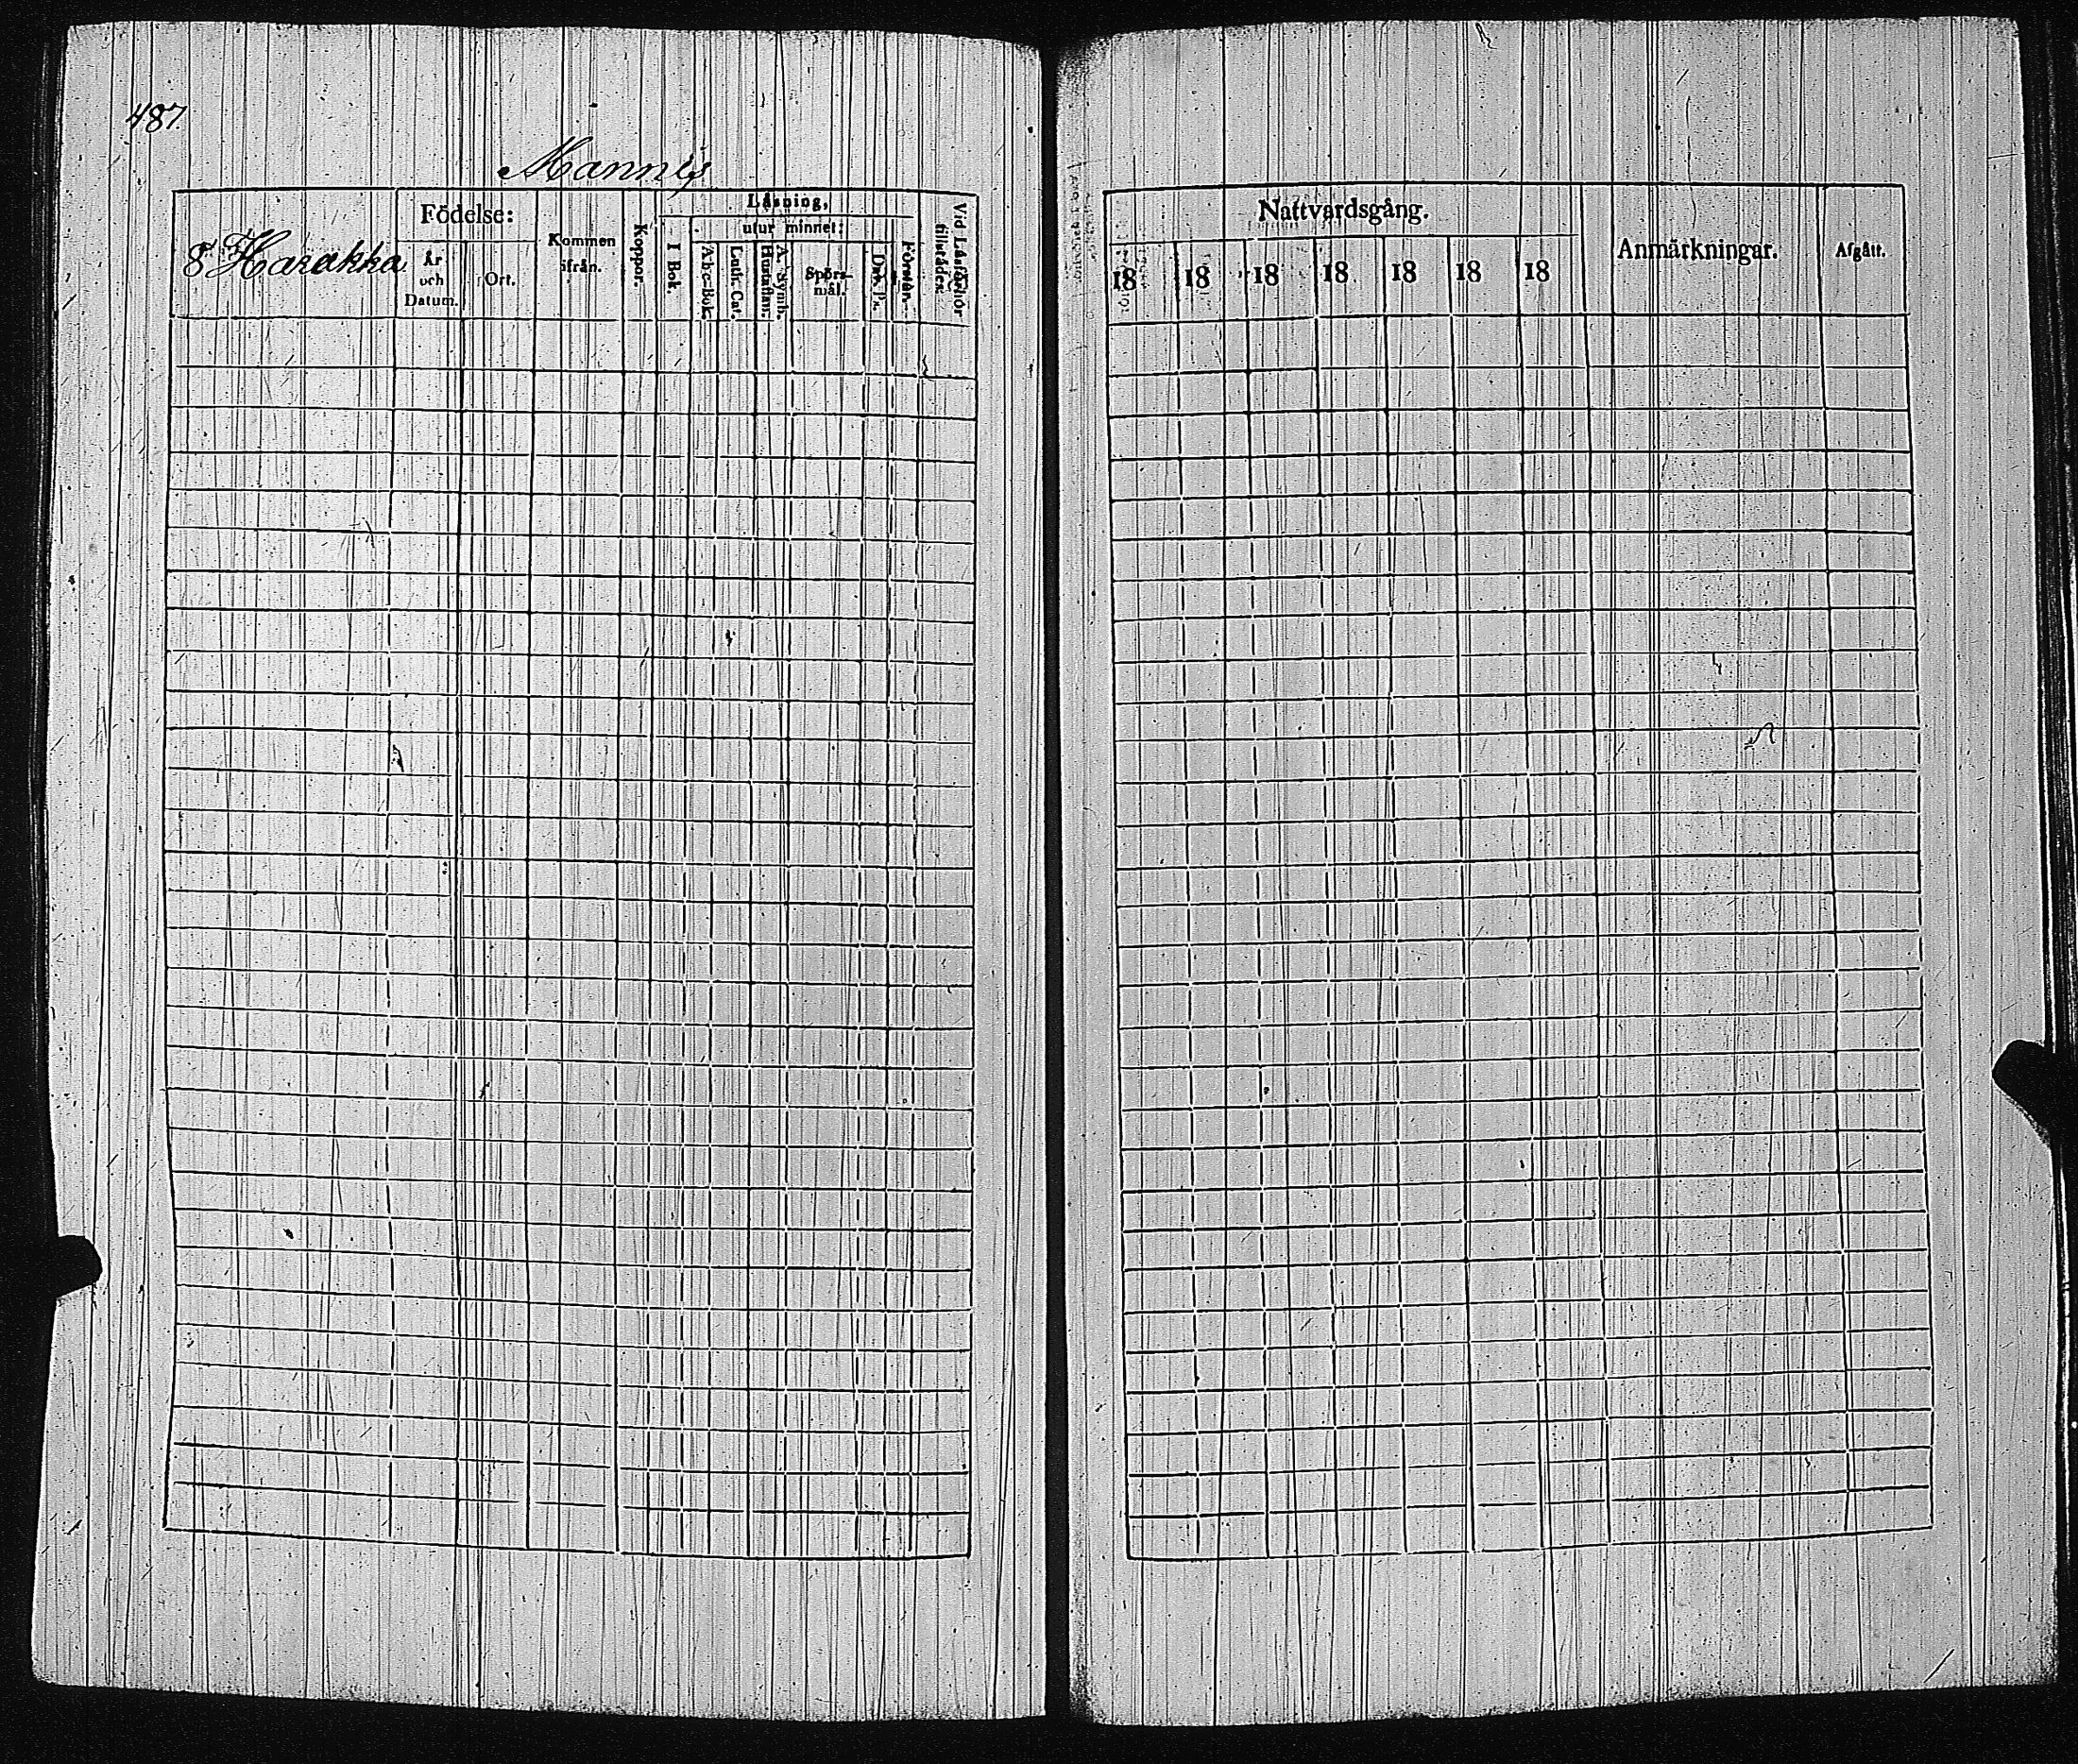 487.
Mannis
8 Harakka
Födelse:
År och Datum.
Ort.
Kommen ifrån.
Koppor.
Läsning,
I Bok.
utur minnet:
Abc-Bok.
Luth. Cat.
Hustaflan.
A. Symb.
Spörs-
mål.
Förstår.
Vid Läsförhör tillstädes.
Nattvardsgång.
18 18 18 18 18 18 18
Anmärkningar.
Afgått.